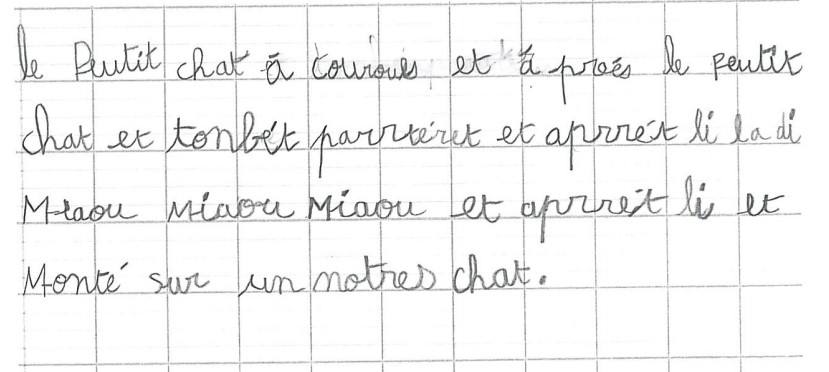 le Peutit chat à couroués et à proés le peutit
chat et tonbét parrtéret et aprrét li la di
Miaou Miaou Miaou et aprrét li et
Monté sur un notres chat.